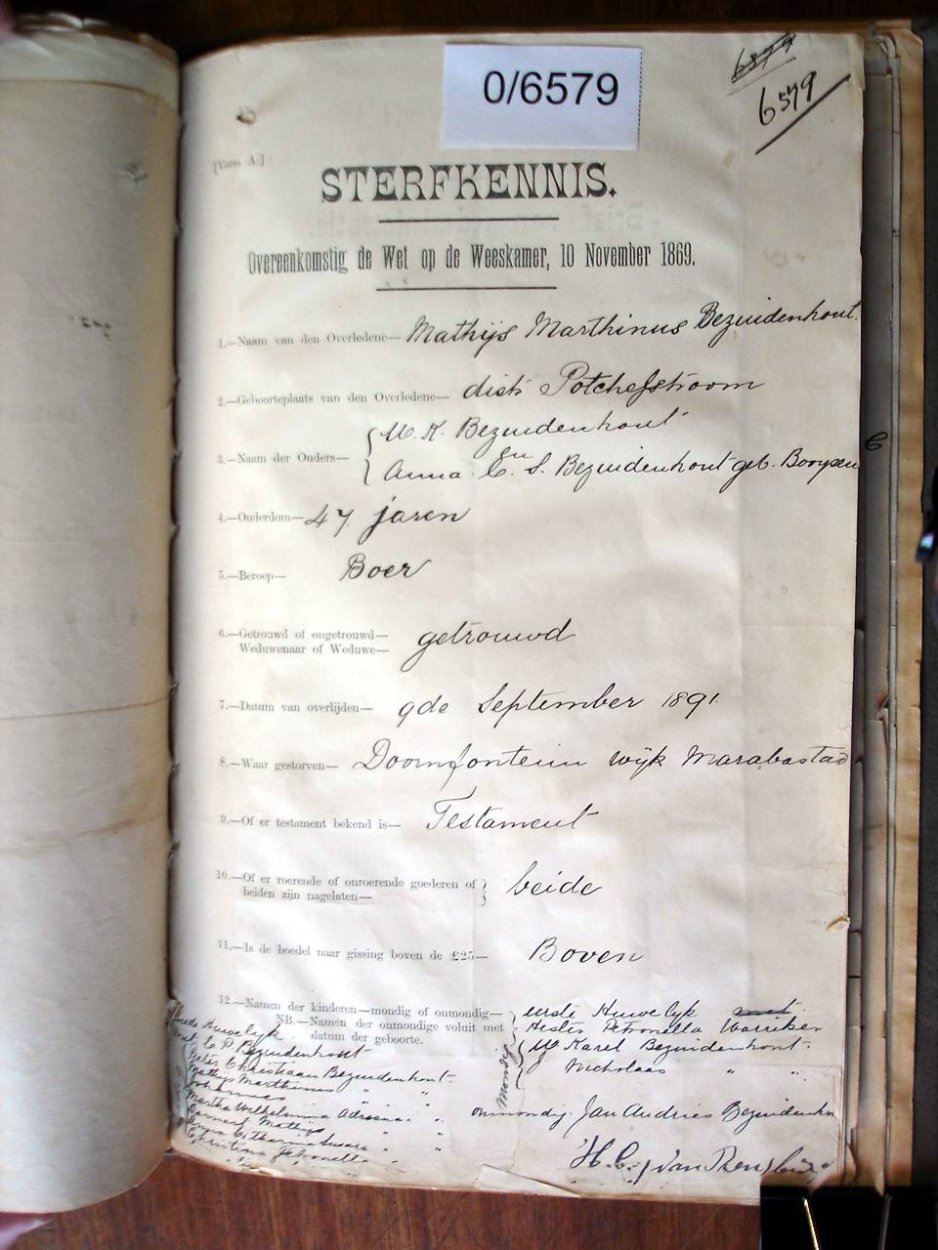 0/6579
6579
6579
[Vorm A.]
STERFKENNIS.
Overeenkomstig de Wet op de Weeskamer, 10 November 1869.
1.—Naam van den Overledene— Mathijs Marthinus Bezuidenhout.
2.—Geboorteplaats van den Overledene— distr Potchefstroom
3.—Naam der Ouders— M. K. Bezuidenhout
en
Anna C. S. Bezuidenhout geb. Booysen
4.—Ouderdom— 47 jaren
5.—Beroep— Boer
6.—Getrouwd of ongetrouwd— getrouwd
Weduwenaar of Weduwe—
7.—Datum van overlijden— 9de September 1891
8.—Waar gestorven— Doornfontein wijk Marabastad
9.—Of er testament bekend is— Testament
10.—Of er roerende of onroerende goederen of beide
beiden zijn nagelaten—
11.—Is de boedel naar gissing boven de £25— Boven
12.—Namen der kinderen—mondig of onmondig— eerste Huwelyk
NB.—Namen der onmondige voluit met Hester Petronella
datum der geboorte. M Karel Bezuidenhout.
Mondig Nicholaas " "
onmondig. Jan Andries
H. C. J van Rensburg
Huwelyk
Bezuidenhout
Pieter Christiaan Bezuidenhout.
Mathys Marthinus " "
Johannes
Martha Wilhelmina Adriana " "
Mathys
Catharina
Christina Petronella